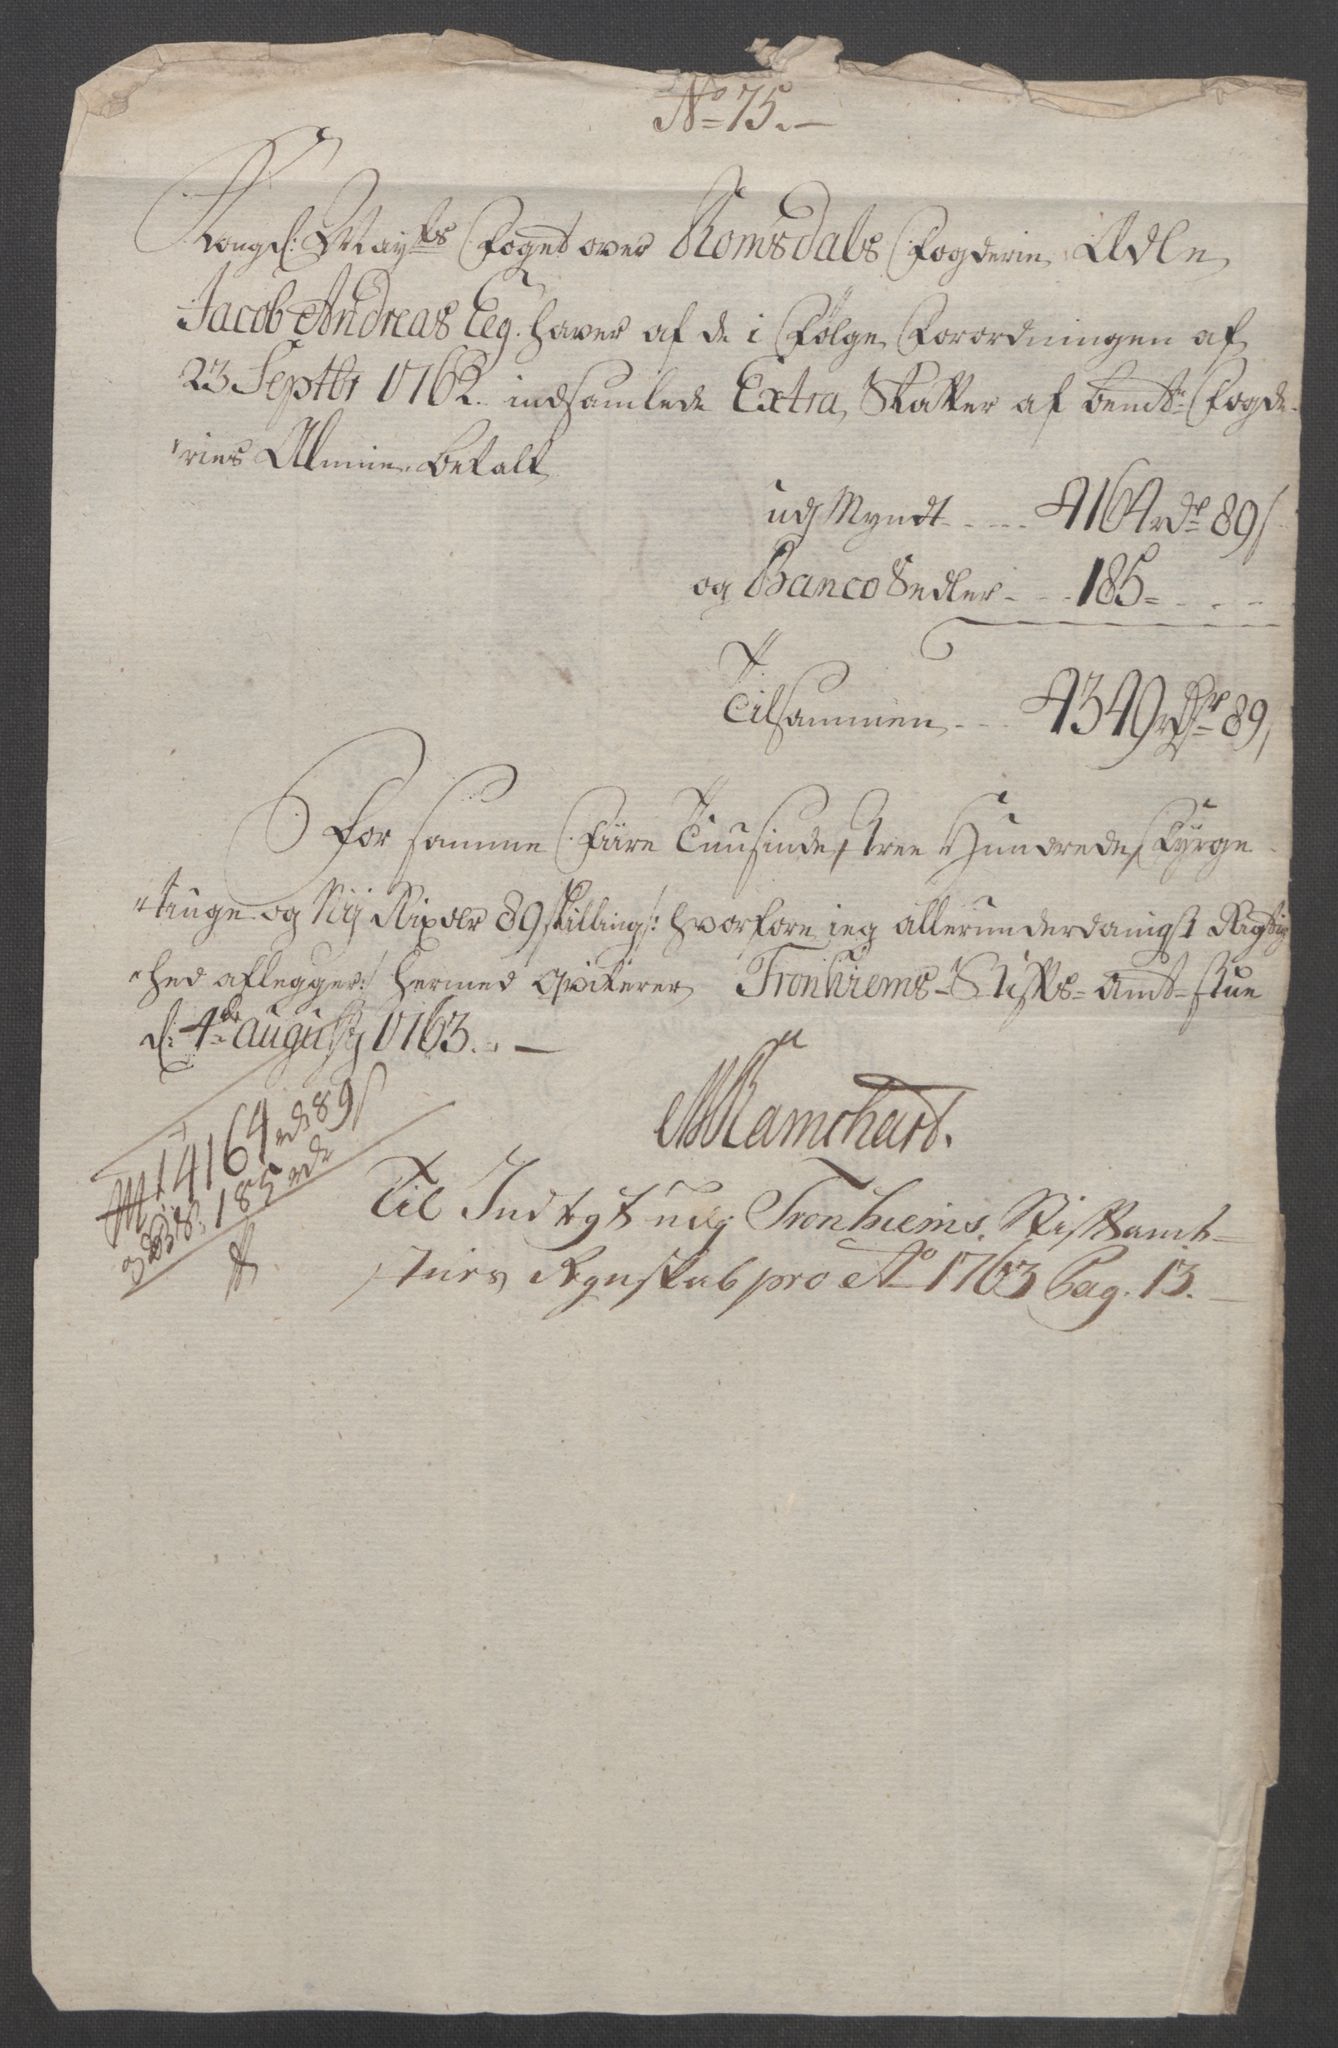 No 75.
Kongel: Mayts Foget over Romsdahls Fogderie, Ædle
Jacob Andreas Eeg. haver af de i Følge Forordningen af
23 Septbr 1762. indsamlede Extra, Skatter af bemte Fogde-
ries Almue. betalt
udj Myndt - - - - 4164 rdr 89 s
og Banco Sedler - - - 185 = - - -
Tilsammen - - - 4349 rdr 89 s
For samme Fiire Tuusinde, tree Hundrede, Fyrge-
tiuge og Nij Rixdlr 89 skilling: hvorfore ieg allerunderdanigst Rigtig
hed aflegger: hermed qviterer Tronhiems-Stifts-amt-stue
d: 4de augustj 1763. -
MRamshart.
Mt 4164 rd 89 s
og BS: 185 rdr
Til Indtegt udj Tronhiems. Stiftamt-
stues Regnskab pro Ao 1763 Pag. 13. -